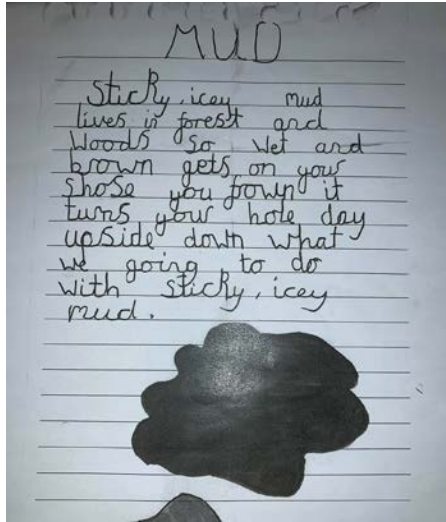 MUD
Sticky, icey mud
lives in forest and
woods so wet and
brown gets on your
shose you frown it
turns your hole day
upside down what
we going to do
with sticky, icey
mud.